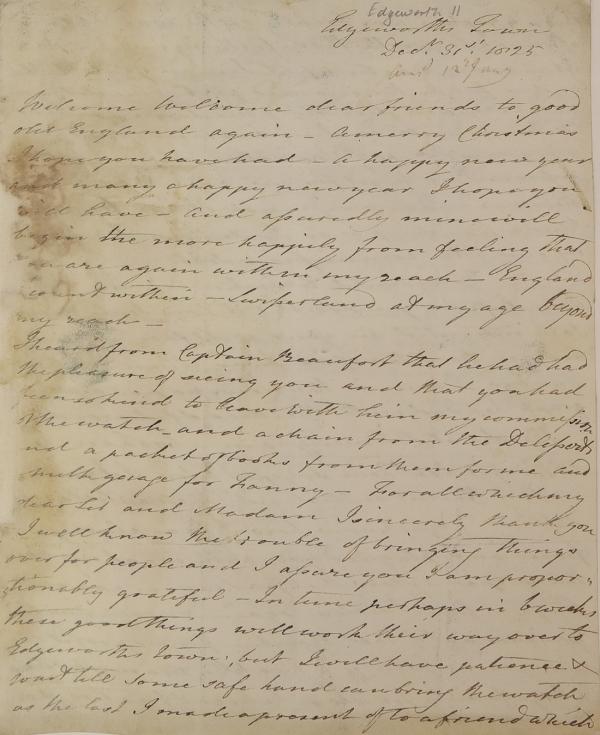 Edgeworth 11
Edgeworths Town
Decr. 31st 1825
ansd 12th Jany
Welcome Welcome dear friends to good
old England again – A merry Christmas
I hope you have had – a happy new year
and many a happy new year I hope you
will have – and assuredly mine will
begin the more happily from feeling that
you are again within my reach – England
I count within – Switzerland at my age beyond
my reach –
I heard from Captain Beaufort that he had had
the pleasure of seeing you and that you had
been so kind to leave with him my commission
of the watch – and a chain from the Delesserts
and a packet of books from them for me and
for Fanny – For all which my
dear Sir and Madam I sincerely thank you
I well know the trouble of bringing things
over for people and I assure you I am propor-
tionably grateful – In time perhaps in 6 weeks
these good things will work their way over to
Edgeworths Town; but I will have patience &
wait till some safe hand can bring the watch
as the last I made a present of to a friend which